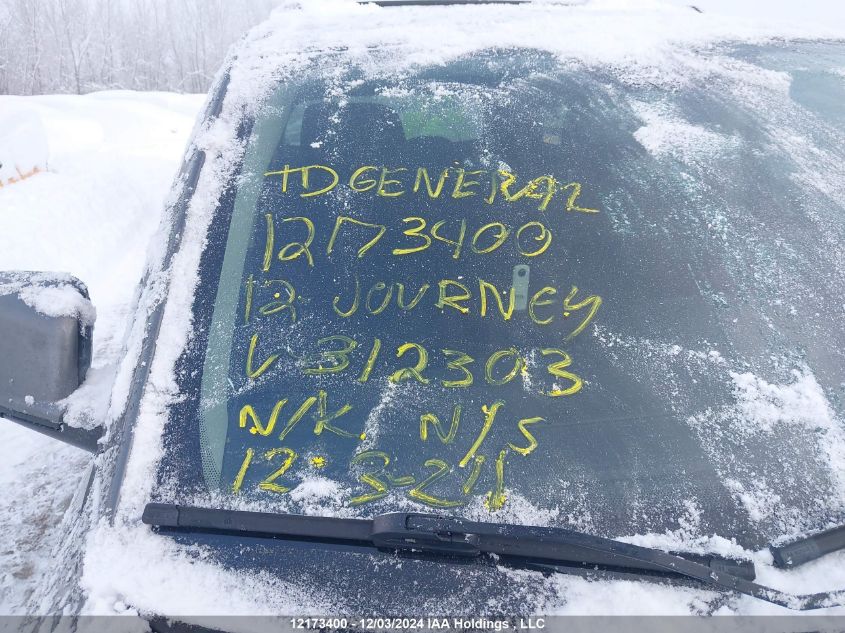 TD GENERAL
12173400
12 JOURNEY
V 312303
N/K. N/S
12-3-24
12173400 - 12/03/2024 IAA Holdings , LLC